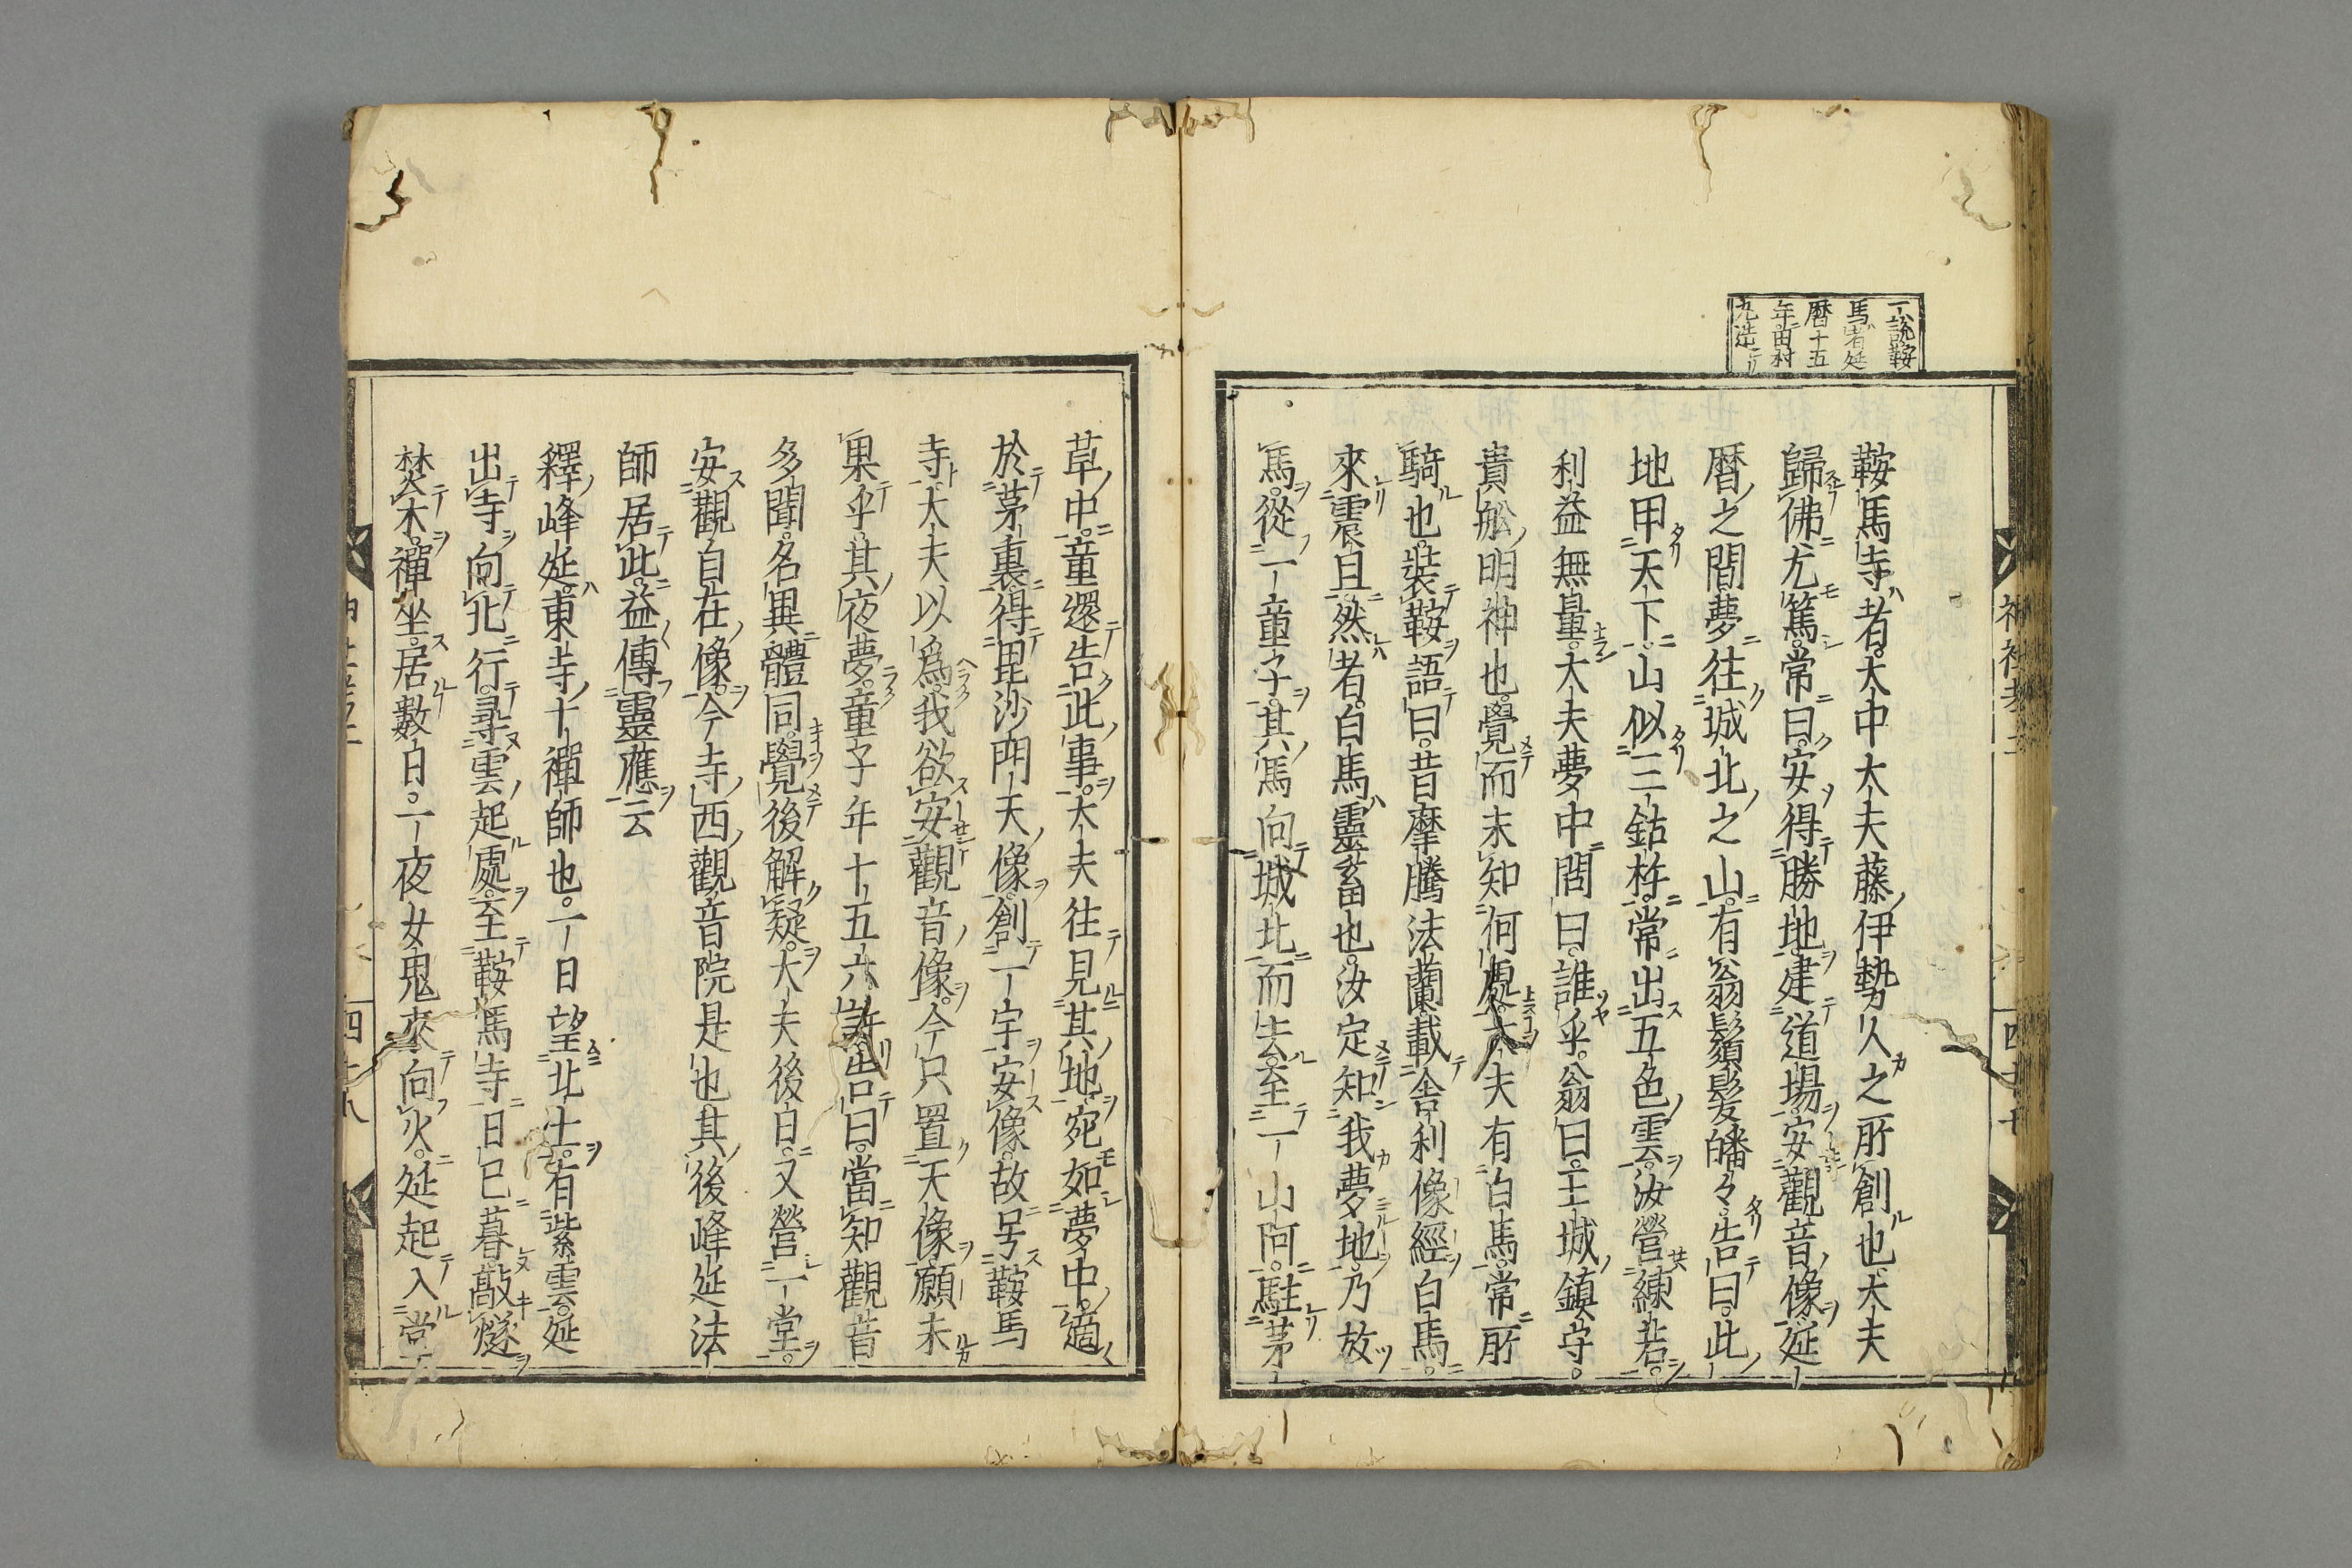 一說鞍
馬者延
曆十五
年田村
丸造
鞍馬寺者。大中大夫藤伊勢人之所創也。大夫
歸佛尤篤。常曰。安得勝地。建道場。安觀音像。延
曆之間夢往城北之山。有翁鬚髮皤々。告曰。此
地甲天下。山似三鈷杵。常出五色雲。汝營練若。
利益無量。大夫夢中問曰。誰乎。翁曰。王城鎮守。
貴舩明神也。覺而未知何處。大夫有白馬。常所
騎也。裝鞍語曰。昔摩騰法蘭載舍利像經白馬。
來震旦。然者。白馬靈畜也。汝定知我夢地。乃放
馬。從一童子。其馬向城北而去。至一山阿。駐茅
神社考二
草中。童還告此事。大夫往見其地。宛如夢中。適
於茅裏得毘沙門天像。創一宇安像。故号鞍馬
寺。大夫以爲。我欲安觀音像。今只置天像。願未
果乎。其夜夢。童子年十五六許。告曰。當知觀音
多聞。名異體同。覺後解疑。大夫後日。又營一堂。
安觀自在像。今寺西觀音院是也。其後峰延法
師居此。益傳靈應云
釋峰延。東寺十禪師也。一日望北土。有紫雲。延
出寺向北行。尋雲起處。至鞍馬寺。日已暮。敲燧
焚木。禪坐。居數日。一夜女鬼來向火。延起入堂